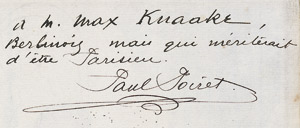 A M. Max Knaake,
Berlinois mais qui mériterait
d'être Parisien.
Paul Poiret